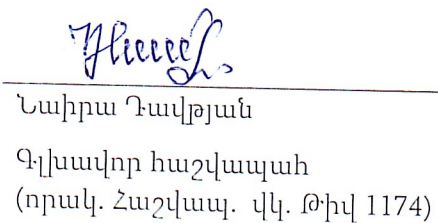 Նաիրա Դավթյան
Գլխավոր հաշվապահ
(որակ. Հաշվապ. վկ. Թիվ 1174)